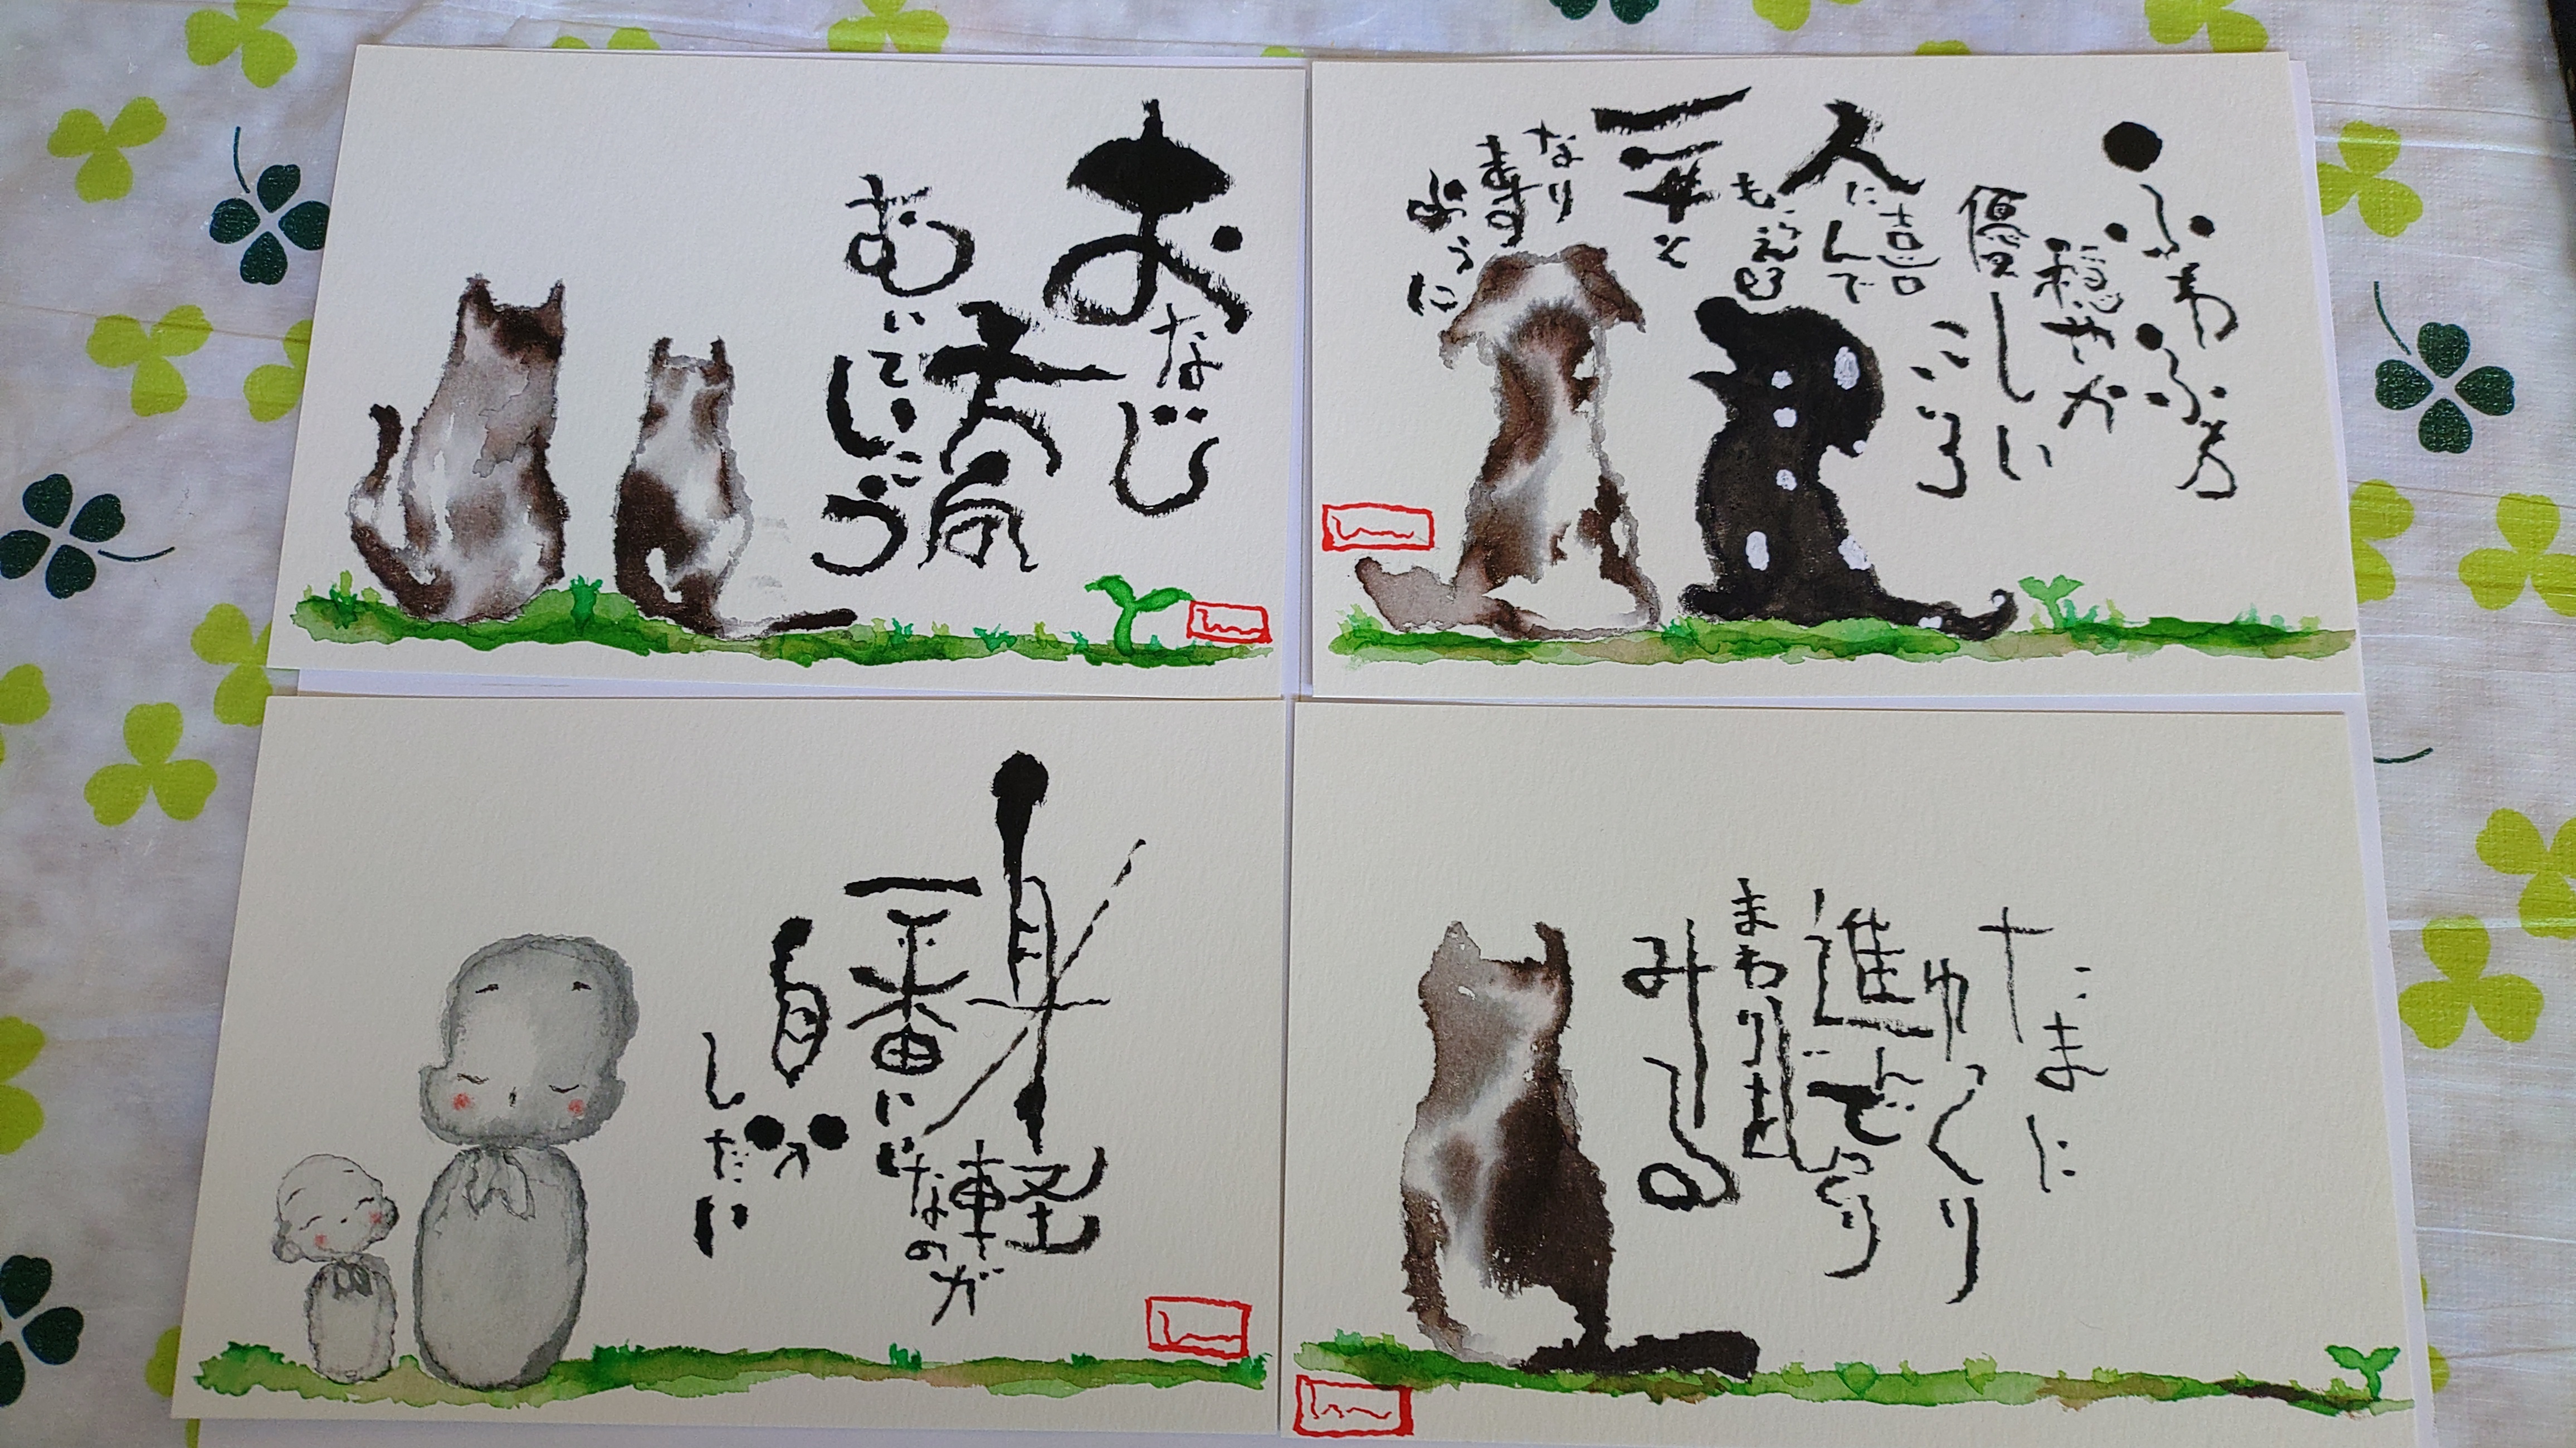 おなじ
方向
むいて
いこう
ふわふわ
穏やか
優しい
こころ
人に喜んで
もらえる
一年と
なり
ます
ように
身軽なのが
一番いい
自分
しだい
たまに
ゆっくり
進んで
まわりを
みる